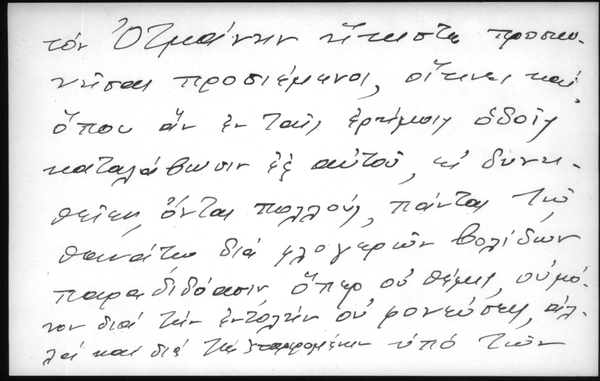 τόν Ὀτμάνην ἥκιστα προσκυ-
νῆσαι προσιέμενοι, οἵτινες καί
ὅπου ἄν ἐν ταῖς ἐρήμοις ὁδοῖς
καταλάβωσιν ἐξ αὐτοῦ, εἰ δυνη-
θεῖεν, ὄντας πολλούς, πάντας τῷ
θανάτῳ διά φλογερῶν βολίδων
παραδιδόασιν ὅπερ οὐ θέμις, οὐ μό-
νον διά τήν ἐντολήν οὐ φονεύσεις, ἀλ-
λά καί διά τῶν ὑπό τῶν